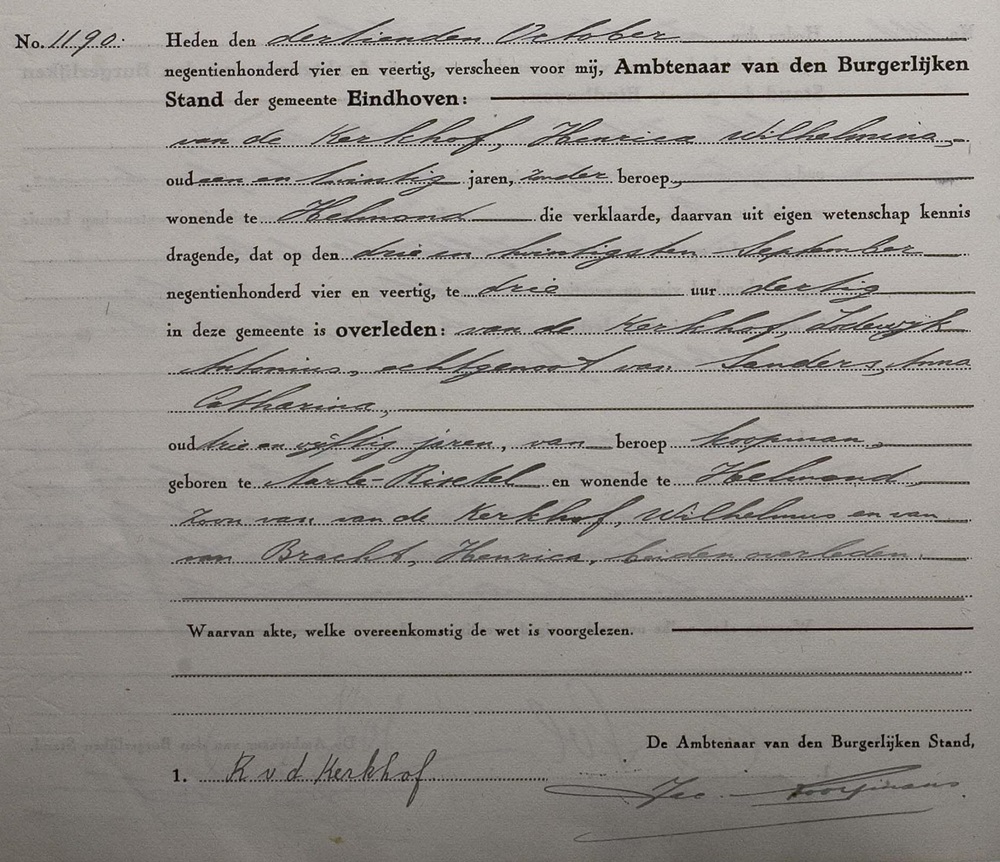 No. 1190. Heden den dertienden October
negentienhonderd vier en veertig, verscheen voor mij, Ambtenaar van den Burgerlijken
Stand der gemeente Eindhoven:
van de Kerkhof, Henrica Wilhelmina,
oud een en twintig jaren, zonder beroep,
wonende te Helmond die verklaarde, daarvan uit eigen wetenschap kennis
dragende, dat op den drie en twintigsten September
negentienhonderd vier en veertig, te drie uur dertig
in deze gemeente is overleden: van de Kerkhof, Lodewijk
Antonius, echtgenoot van Sanders, Anna
Catharina,
oud drie en vijftig jaren, van beroep koopman,
geboren te Aarle-Rixtel en wonende te Helmond
zoon van van de Kerkhof, Wilhelmus en van
van Bracht, Henrica, beiden overleden.
Waarvan akte, welke overeenkomstig de wet is voorgelezen.
De Ambtenaar van den Burgerlijken Stand,
1. R v d Kerkhof